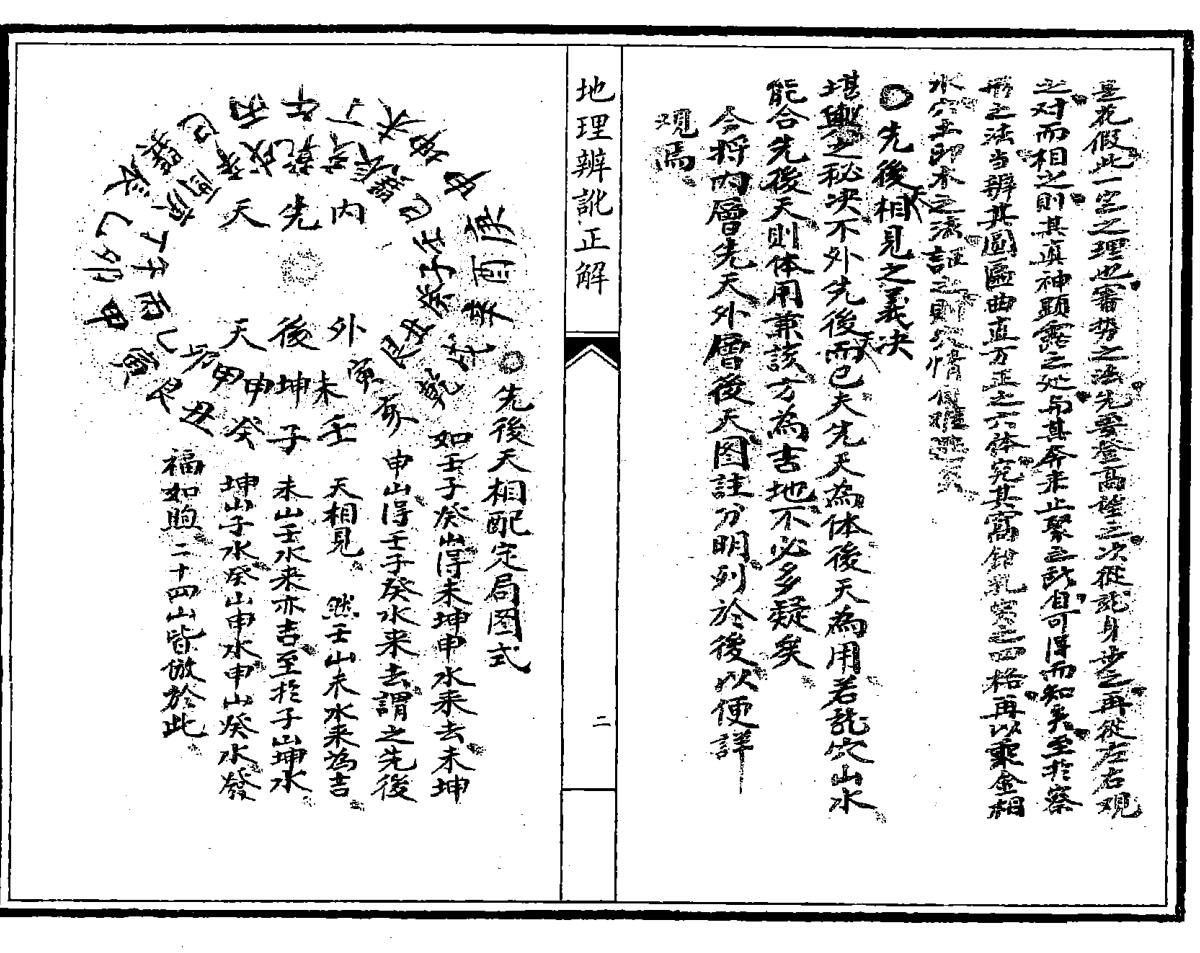 是花假此一定之理也審势之法先要登高望之次從龍身步之再從左右观
之对而相之則其真神顕露之处与其奔来止聚之所自可得而知矣至於察
形之法当辨其圓匾曲直方正之六体究其窩鉗乳突之四格再以乘金相
水穴土印木之法証之則穴情
○先後天相見之義决
堪輿之秘决不外先後天而已夫先天為体後天為用若龍穴山水
能合先後天則体用兼該方為吉地不必多疑矣
今将内層先天外層後天图註分明列於後以便詳
观焉
地理辨訛正解
二
○先後天相配定局图式
如壬子癸山得未坤申水来去未坤
申山得壬子癸水来去謂之先後
天相見 然壬山未水来為吉
未山壬水来亦吉至於子山坤水
坤山子水癸山申水申山癸水發
福如煦二十四山皆倣於此
内先天
外後天
壬子癸丑艮寅甲卯乙辰巽巳丙午丁未坤申庚酉辛戌乾亥
未坤申甲卯乙丙子丁